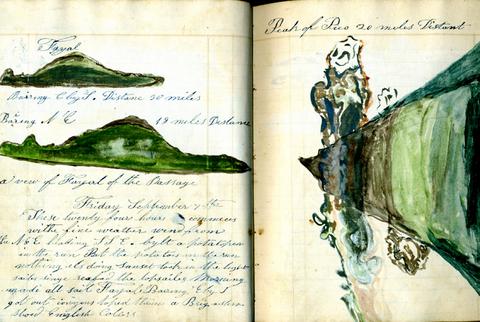 Fayal
Bearing E by S. Distane 30 miles
Bearing N E 18 miles Distane
a view of Fayal of the Passage
Friday September 7th
These twenty fours hours commences
with fine weather wind from
the N & E heading S S E. bylt a potato pen
in the run Put the potatos in the run
nothing els doing Sunset took in the light
sails
made all sail Fayal Baring E by S
got out
show English Colors
Peak of Pico 20 miles Distant